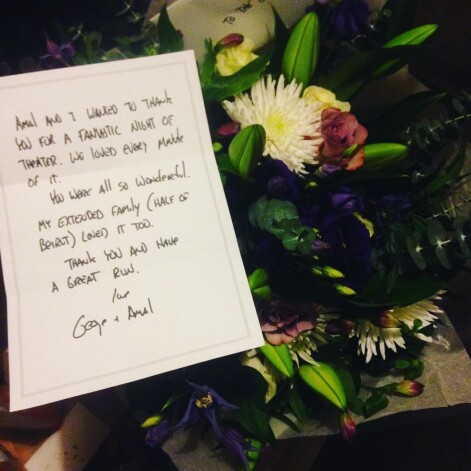 TO THE
AMAL AND I WANTED TO THANK
YOU FOR A FANTASTIC NIGHT OF
THEATER. WE LOVED EVERY MINUTE
OF IT.
YOU WERE ALL SO WONDERFUL.
MY EXTENDED FAMILY (HALF OF
BEIRUT) LOVED IT TOO.
THANK YOU AND HAVE
A GREAT RUN.
love
George + Amal